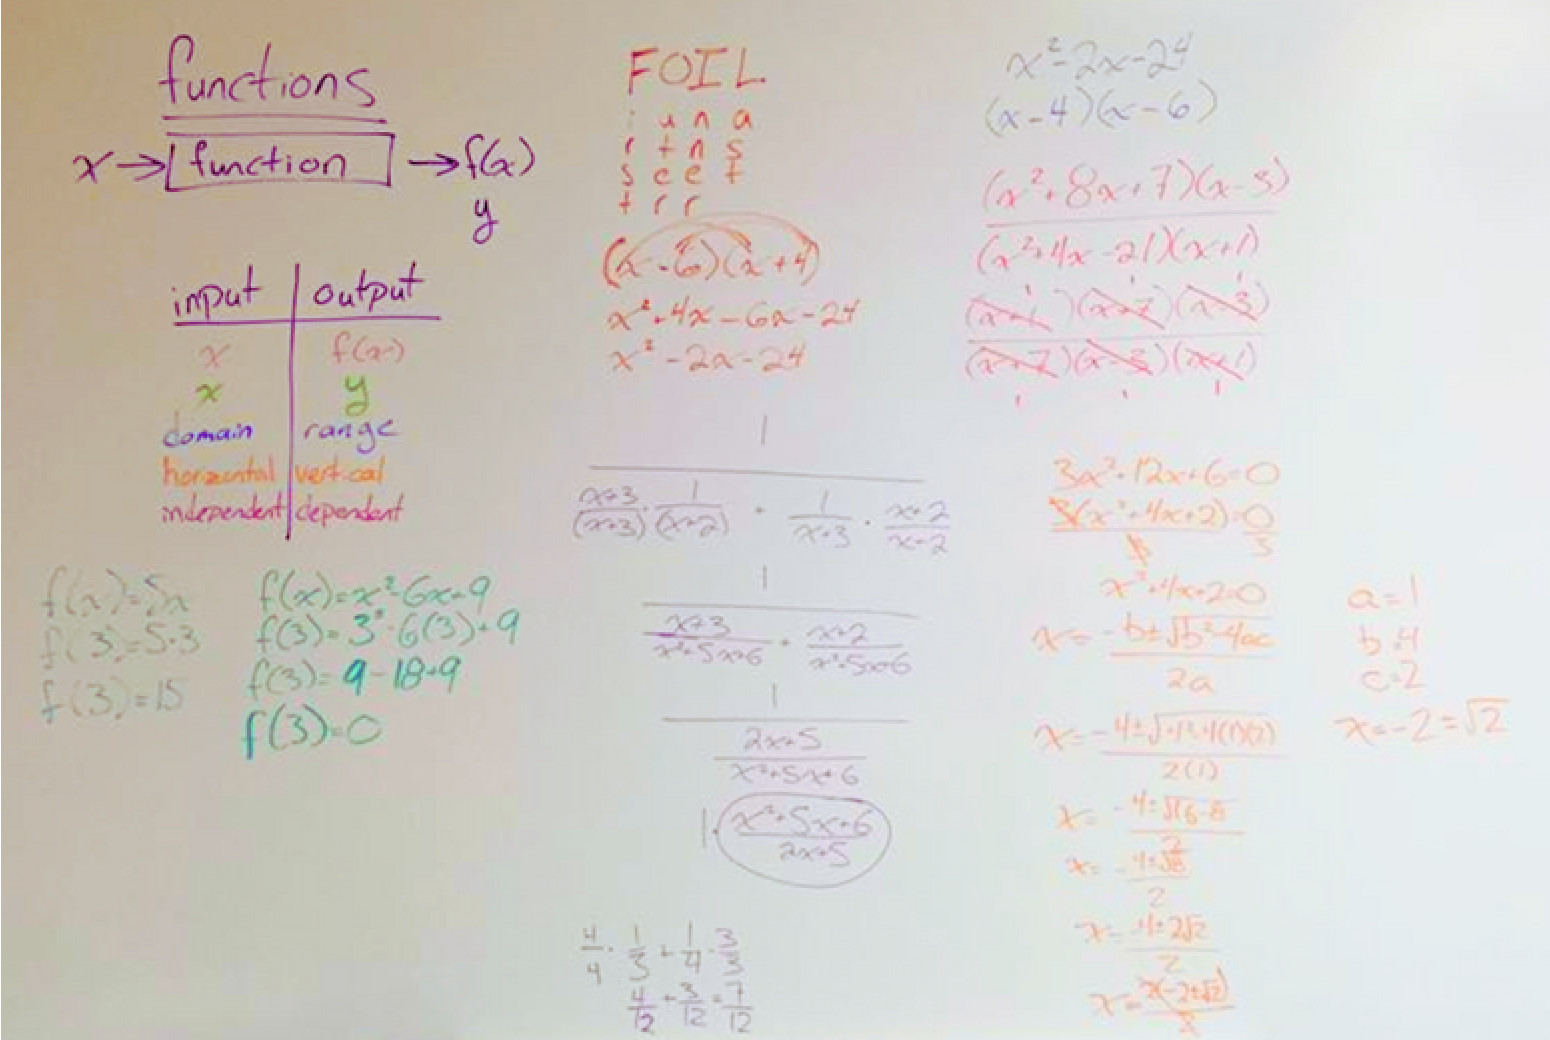 functions
x → function → f(x)
y
input | output
x | f(x)
x | y
domain | range
horizontal | vertical
independent | dependent
f(x)=5x
f(3)=5·3
f(3)=15
f(x)=x²-6x+9
f(3)=3²-6(3)+9
f(3)=9-18+9
f(3)=0
FOIL
i u n a
r t n s
s e e t
t r r
(x-6)(x+4)
x²+4x-6x-24
x²-2x-24
1
x+3/(x+3) · 1/(x+2) + 1/x+3 · x+2/x+2
1
x+3/x²+5x+6 + x+2/x²+5x+6
1
2x+5/x²+5x+6
1· x²+5x+6/2x+5
4/4 · 1/3 + 1/4 · 3/3
4/12 + 3/12 = 7/12
x²-2x-24
(x-4)(x-6)
(x²+8x+7)(x-3)
(x²+4x-21)(x+1)
1 1 1
(x+1)(x+7)(x-3)
(x+7)(x-3)(x+1)
1 1 1
3x²+12x+6=0
3(x²+4x+2)=0
3 3
x²+4x+2=0
x=-b±√b²-4ac
2a
x=-4±√4²-4(1)(2)
2(1)
x=-4±√16-8
2
x=-4±√8
2
x=-4±2√2
2
x=2(-2±√2)
2
a=1
b=4
c=2
x=-2±√2